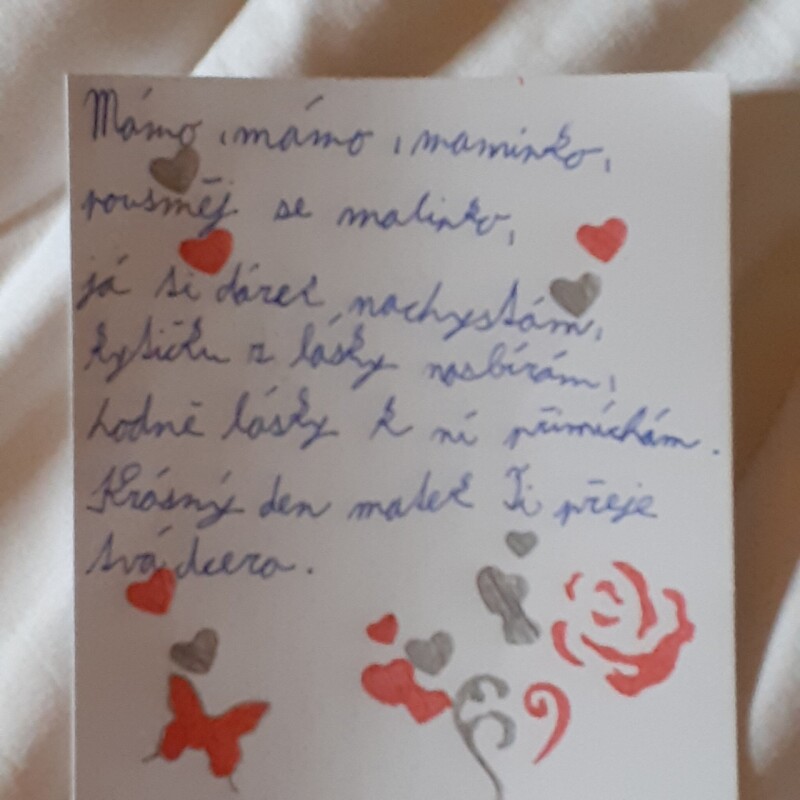 Mámo, mámo, maminko,
pousměj se malinko,
já si dárek nachystám,
kytičku z lásky nasbírám,
hodně lásky k ní přimíchám.
Krásný den matek Ti přeje
tvá dcera.